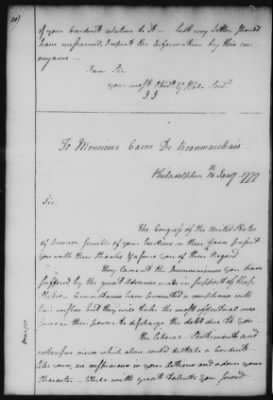 of your Conduct relative to it — lest my letter should
have miscarried, I repeat the Information by this con-
veyance —
I am Sir
your most Obedt. & Hble Servt.
J J
To Monsieur Caron De Beaumarchais
Philadelphia 15th Jany. 1779
Sir,
The Congress of the United States
of America sensible of your Exertions in their favor present
you with their thanks & assure you of their Regard
They lament the Inconveniences you have
suffered by the great Advances made in Support of these
States. Circumstances have prevented a compliance with
their wishes but they will take the most effectual mea-
sures in their power to discharge the debt due to you
The liberal Sentiments and
extensive views which alone could dictate a Conduct
like yours, are conspicuous in your Actions and adorn your
Character. While with great Talents you served